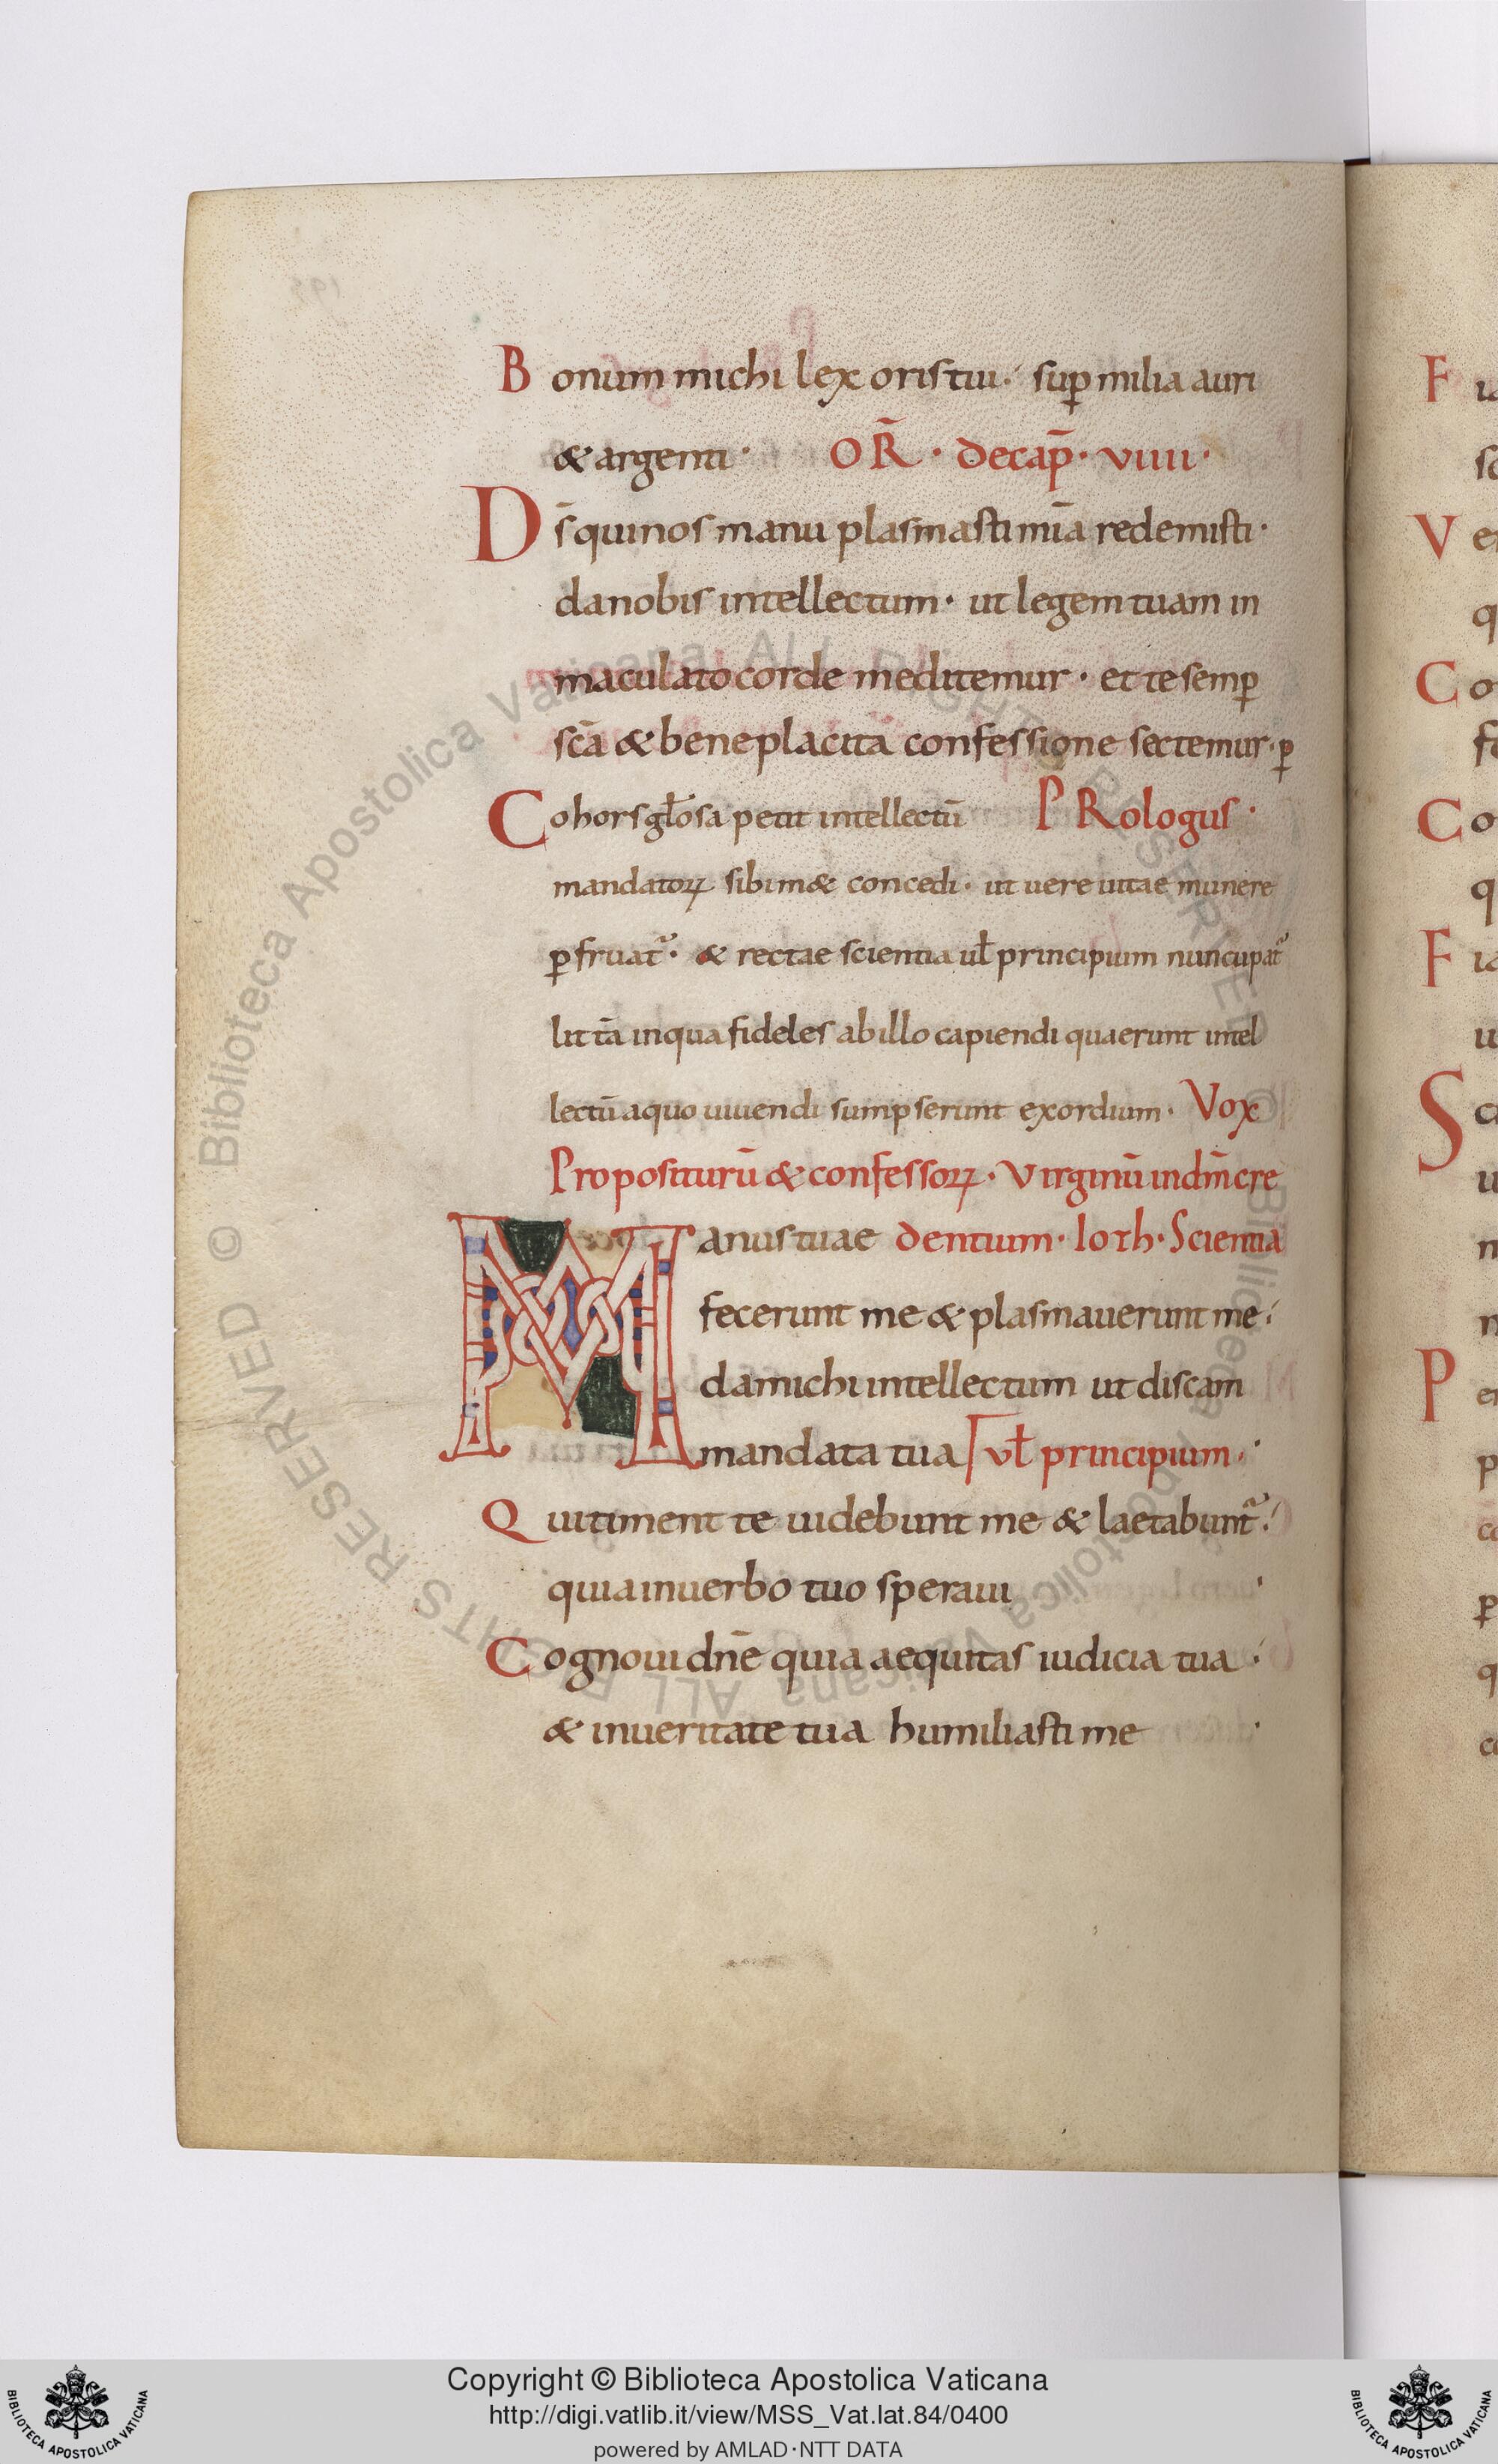 Bonum michi lex oris tui· sup̱ milia auri
& argenti· OR̃· De cap̄· VIIII·
D̄s qui nos manu plasmasti mīa redemisti·
da nobis intellectum· ut legem tuam in
maculato corde meditemur· et te semp̱
sc̄a & beneplacita confessione sectemur· p̱
Cohors gło̅sa petit intellectū PRologus·
mandatoꝝ sibim& concedi· ut uere uitae munere
p̱fruat᷑· & rectae scientia uł principium nuncupat᷑
litt̄a in qua fideles ab illo capiendi quaerunt intel
lectū a quo uiuendi sumpserunt exordium· Vox
Propositurū & confessoꝝ· Virginū in dn̄m cre
Manus tuae dentum· Ioth· Scientia
fecerunt me & plasmauerunt me·
da michi intellectum ut discam
mandata tua uł principium·
Qui timent te uidebunt me & laetabunt᷑·
quia in uerbo tuo speraui·
Cognoui dn̄e quia aequitas iudicia tua·
& in ueritate tua humiliasti me·
Copyright © Biblioteca Apostolica Vaticana
http://digi.vatlib.it/view/MSS_Vat.lat.84/0400
powered by AMLAD·NTT DATA
BIBLIOTECA APOSTOLICA VATICANA
BIBLIOTECA APOSTOLICA VATICANA